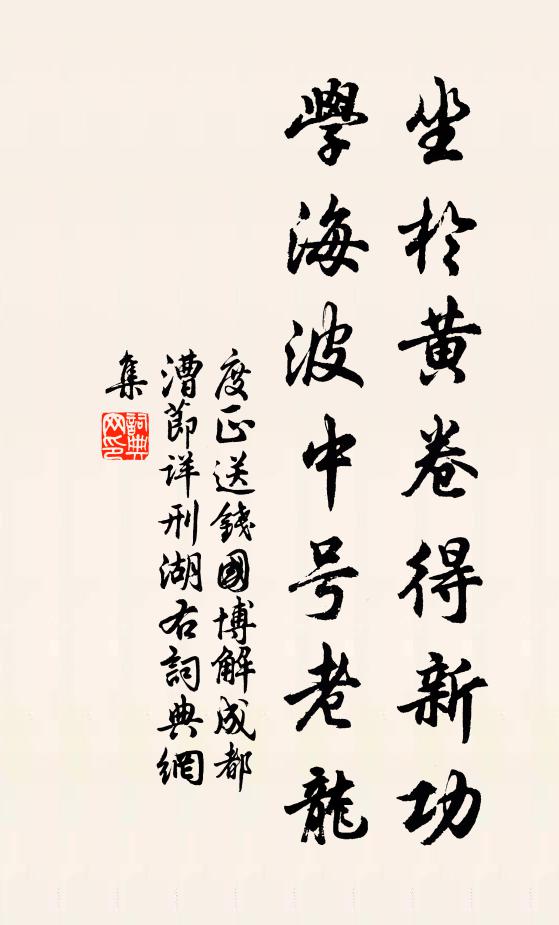 坐於黄卷得新功
學海波中号老龍
度正送錢國博解成都
漕節详刑湖右詞典網
集
詞典
网印